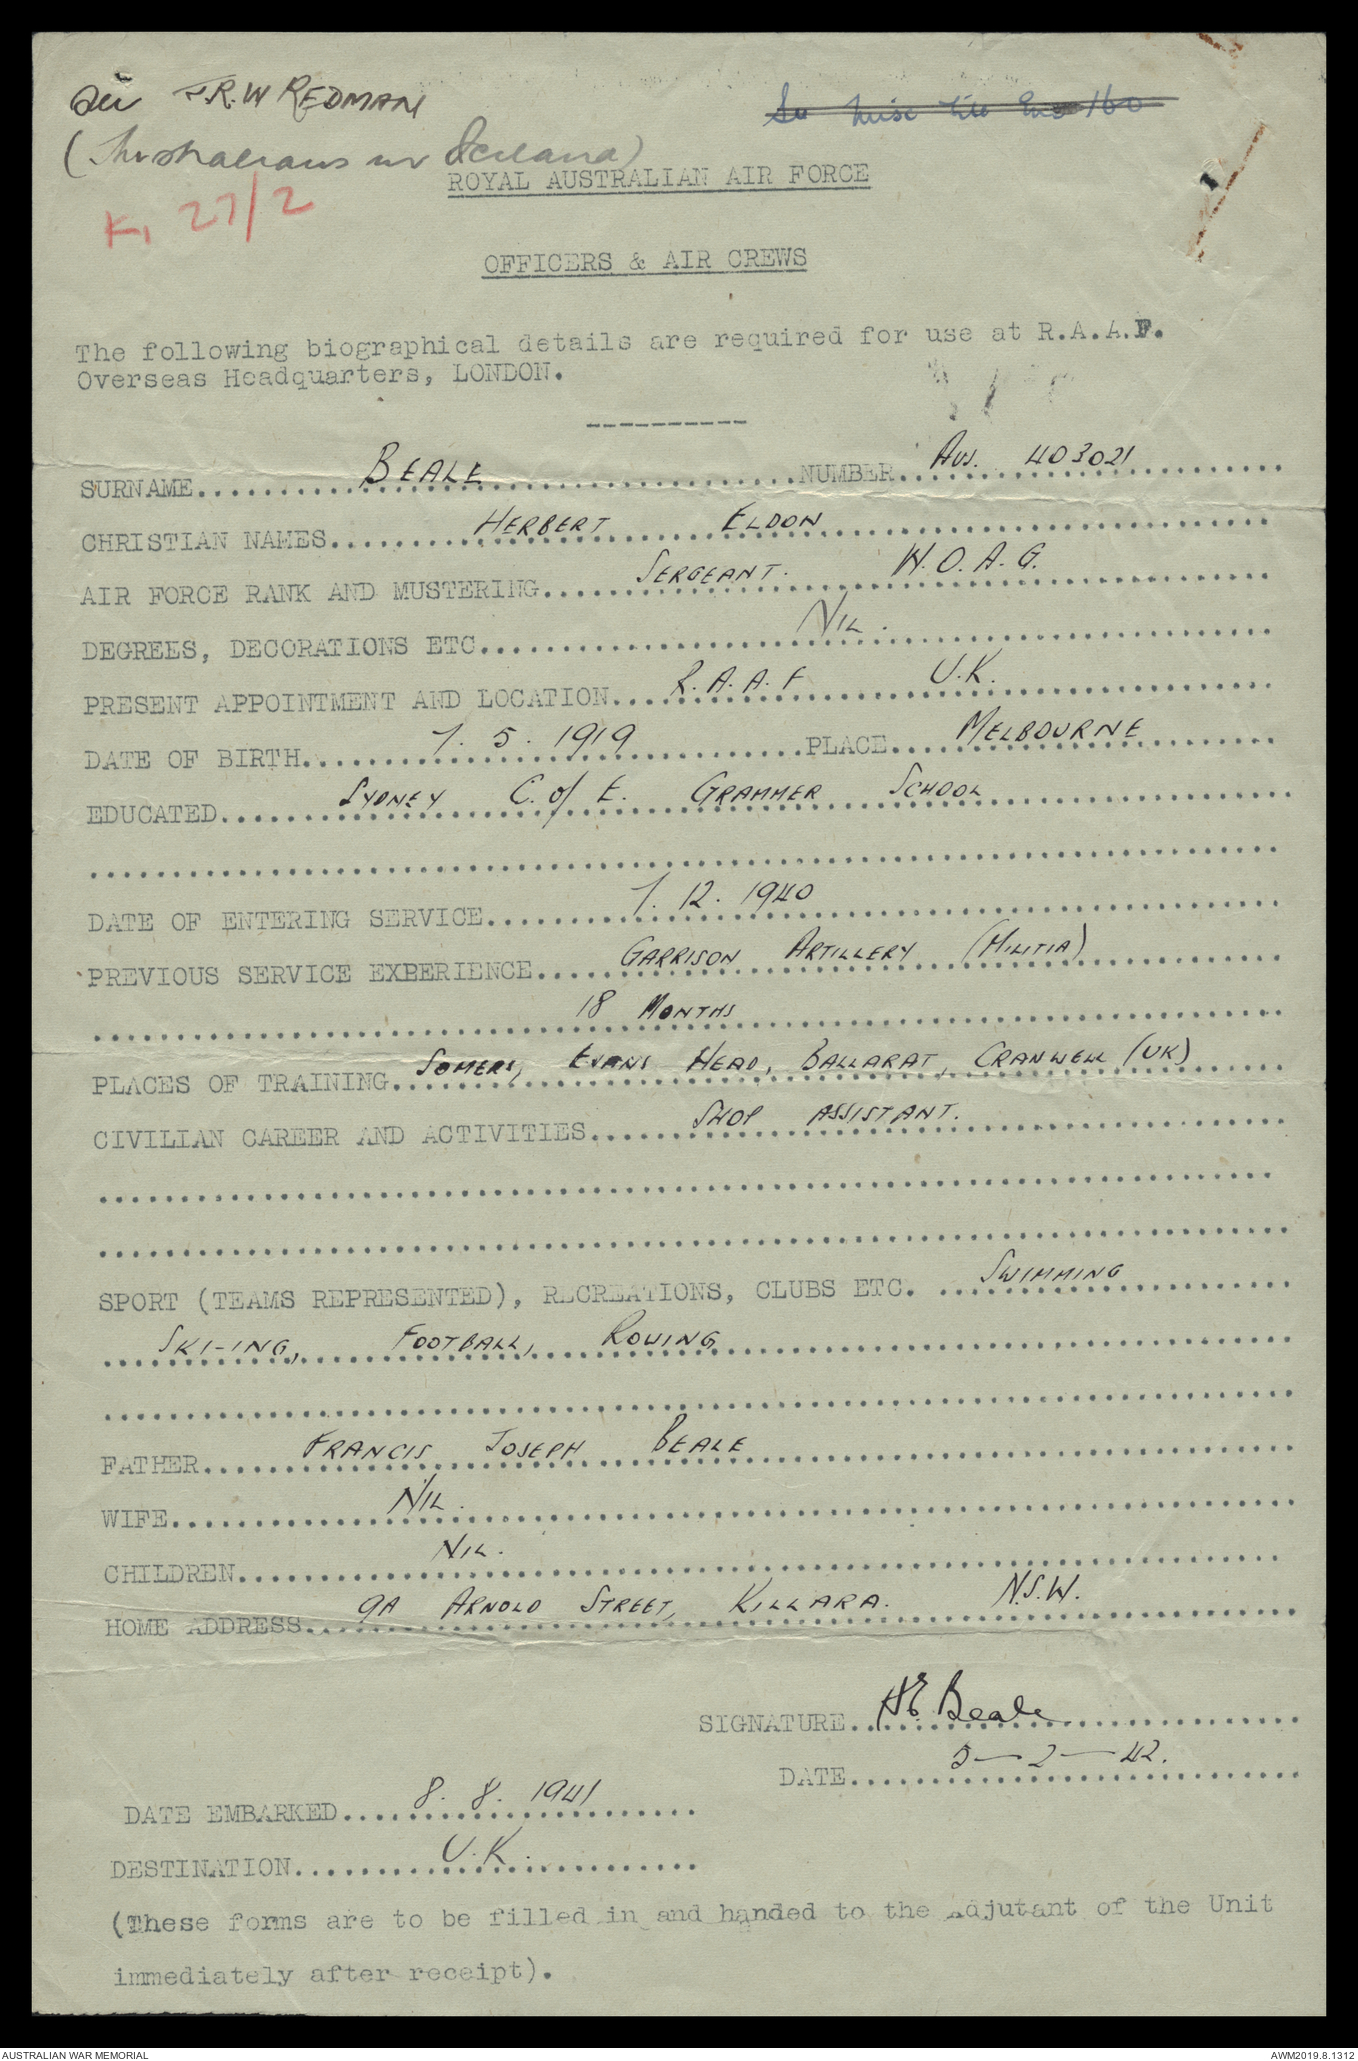 See J.R.W REDMAN
See Misc File Enc 160
(Australians in Iceland)
K, 27/2
ROYAL AUSTRALIAN AIR FORCE
OFFICERS & AIR CREWS
The following biographical details are required for use at R.A.A.F.
Overseas Headquarters, LONDON.
SURNAME BEALE NUMBER Aus. 403021
CHRISTIAN NAMES HERBERT ELDON
AIR FORCE RANK AND MUSTERING SERGEANT. W.O.A.G.
DEGREES, DECORATIONS ETC NIL.
PRESENT APPOINTMENT AND LOCATION R.A.A.F U.K.
DATE OF BIRTH 7. 5. 1919 PLACE MELBOURNE
EDUCATED SYDNEY C. of E. GRAMMER SCHOOL
DATE OF ENTERING SERVICE 7. 12. 1940
PREVIOUS SERVICE EXBERIENCE GARRISON ARTILLERY (MILITIA)
18 MONTHS
PLACES OF TRAINING SOMERS, EVANS HEAD, BALLARAT, CRANWELL (UK)
CIVILIAN CAREER AND ACTIVITIES SHOP ASSISTANT.
SPORT (TEAMS REPRESENTED), RECREATIONS, CLUBS ETC. SWIMMING
SKI-ING, FOOTBALL, ROWING
FATHER FRANCIS JOSEPH BEALE
WIFE NIL.
CHILDREN NIL.
HOME ADDRESS 9A ARNOLD STREET, KILLARA. N.S.W.
SIGNATURE HE Beale
DATE 5-2-42.
DATE EMBARKED 8. 8. 1941
DESTINATION U.K.
(These forms are to be filled in and handed to the Adjutant of the Unit
immediately after receipt).
AUSTRALIAN WAR MEMORIAL AWM2019.8.1312